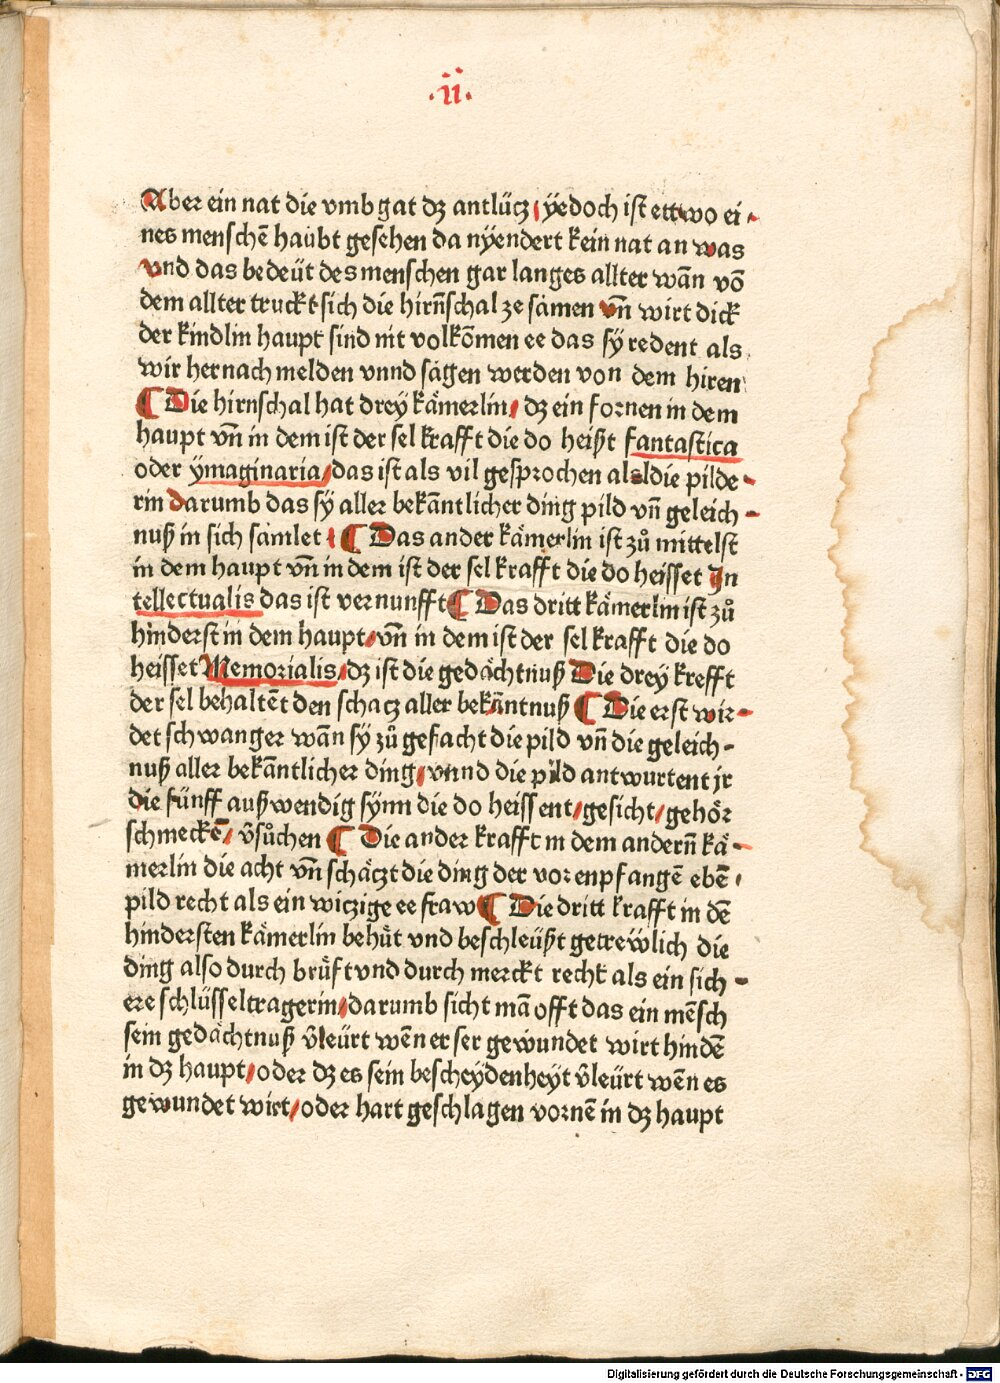 .ii.
Aber ein nat die vmb gat dz antlücz / ÿedoch ist ettwo ei-
nes menschē haubt gesehen da nÿendert kein nat an was
vnd das bedeüt des menschen gar langes allter wān vō
dem allter truckt sich die hirn̄schal ze samen vn̄ wirt dick
der kindlin haupt sind nit volkōmen ee das sÿ redent als
wir hernach melden vnnd sagen werden von dem hiren
¶ Die hirnschal hat dreÿ kämerlin / dz ein fornen in dem
haupt vn̄ in dem ist der sel krafft die do heißt fantastica
oder ÿmaginaria / das ist als vil gesprochen als die pilde-
rin darumb das sÿ aller bekāntlicher ding pild vn̄ geleich-
nuß in sich samlet / ¶ Das ander kämerlin ist zů mittelst
in dem haupt vn̄ in dem ist der sel krafft die do heisset In
tellectualis das ist vernunfft ¶ Das dritt kämerlin ist zů
hinderst in dem haupt / vn̄ in dem ist der sel krafft die do
heisset Memorialis / dz ist die gedächtnuß Die dreÿ krefft
der sel behaltēt den schacz aller bekāntnuß ¶ Die erst wir-
det schwanger wān sÿ zů gefacht die pild vn̄ die geleich-
nuß aller bekāntlicher ding / vnnd die pild antwurtent jr
die fünff außwendig sÿnn die do heissent / gesicht / gehör
schmeckē / v̄sůchen ¶ Die ander krafft in dem andern̄ kä-
merlin die acht vn̄ schäczt die ding der vor enpfangē ebē
pild recht als ein wiczige eefraw ¶ Die dritt krafft in dē
hindersten kämerlin behüt vnd beschleüßt getrewlich die
ding also durch brüft vnd durch merckt recht als ein sich-
ere schlüsseltragerin / darumb sicht mā offt das ein mēsch
sein gedächtnuß v̄leürt wēn er ser gewundet wirt hindē
in dz haupt / oder dz es sein bescheÿdenheÿt v̄leürt wēn es
gewundet wirt / oder hart geschlagen vornē in dz haupt
Digitalisierung gefördert durch die Deutsche Forschungsgemeinschaft - DFG